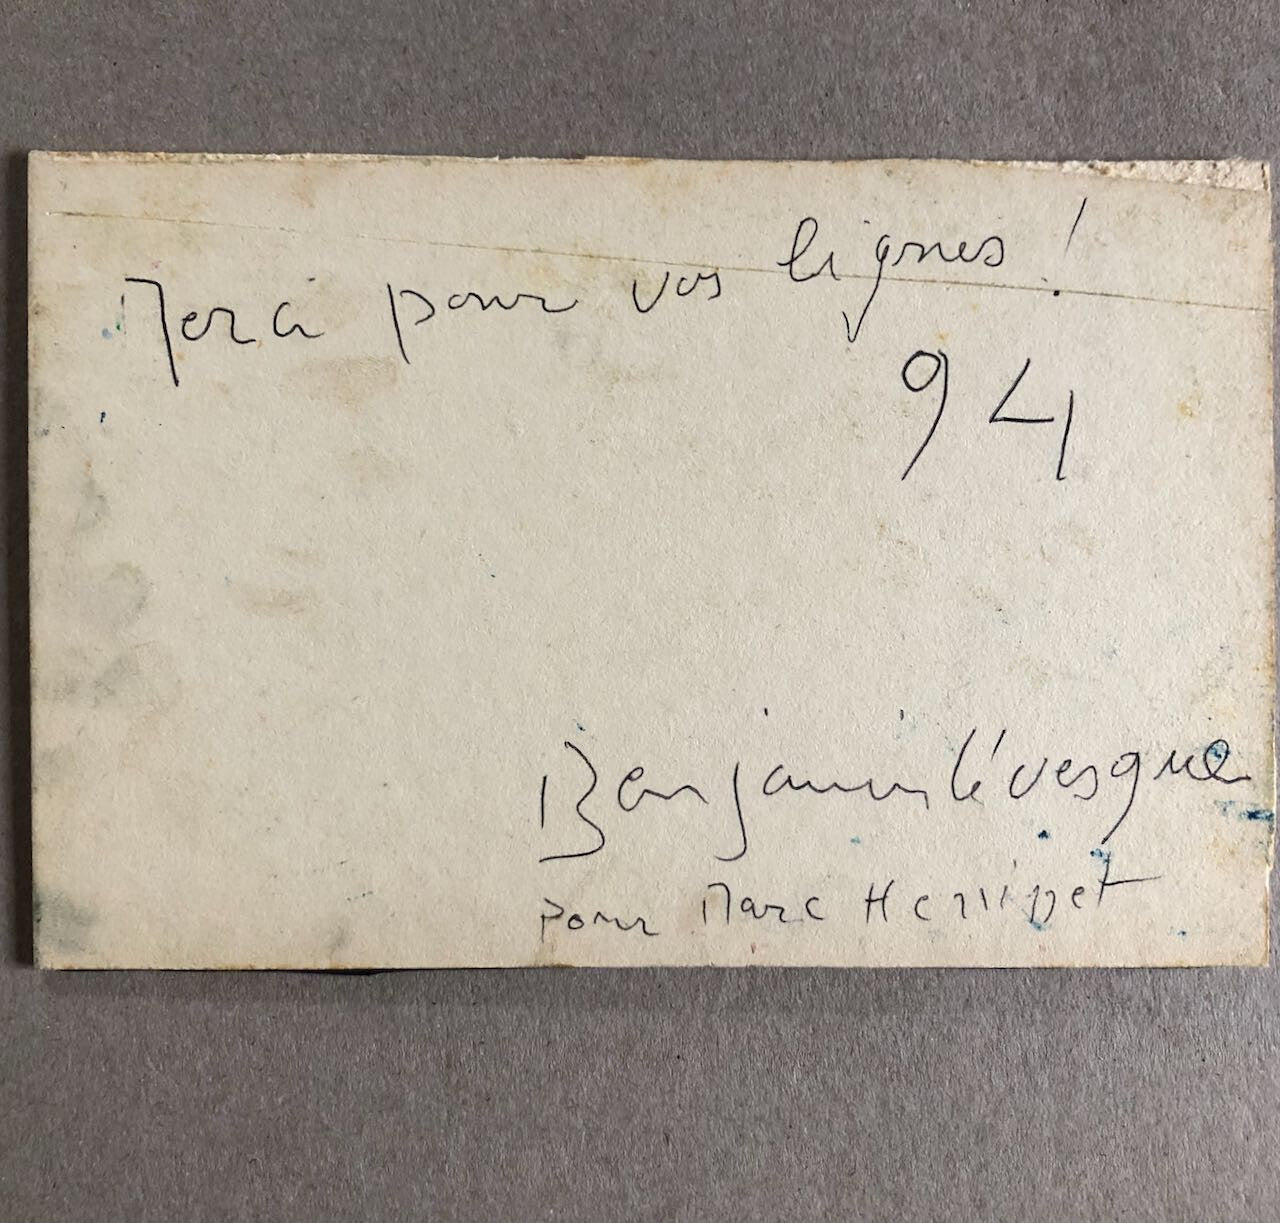 Merci pour vos lignes !
94
Benjamin Lévesque
pour Marc